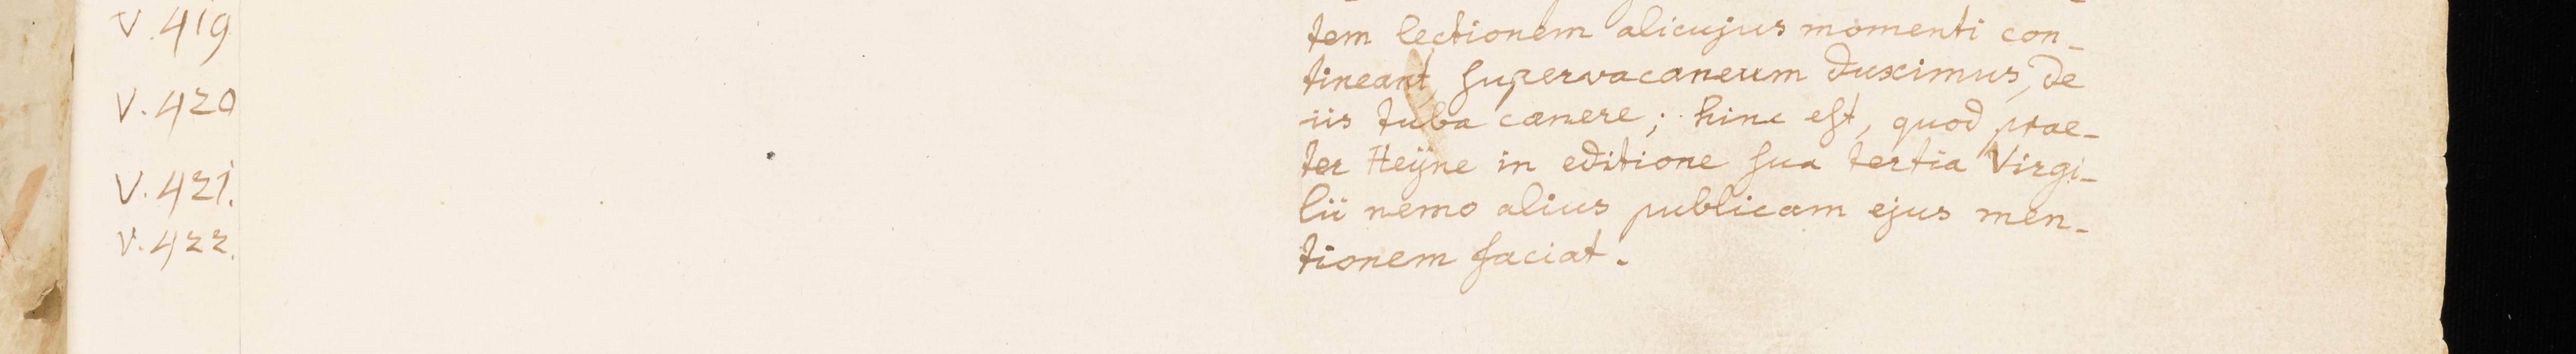 V. 419
V. 420
V. 421.
V. 422.
tem lectionem alicujus momenti con-
tineant, supervacaneum duximus, de
iis tuba canere; hinc est, quod prae-
ter Heÿne in editione sua tertia Virgi-
lii nemo alius publicam ejus men-
tionem faciat.